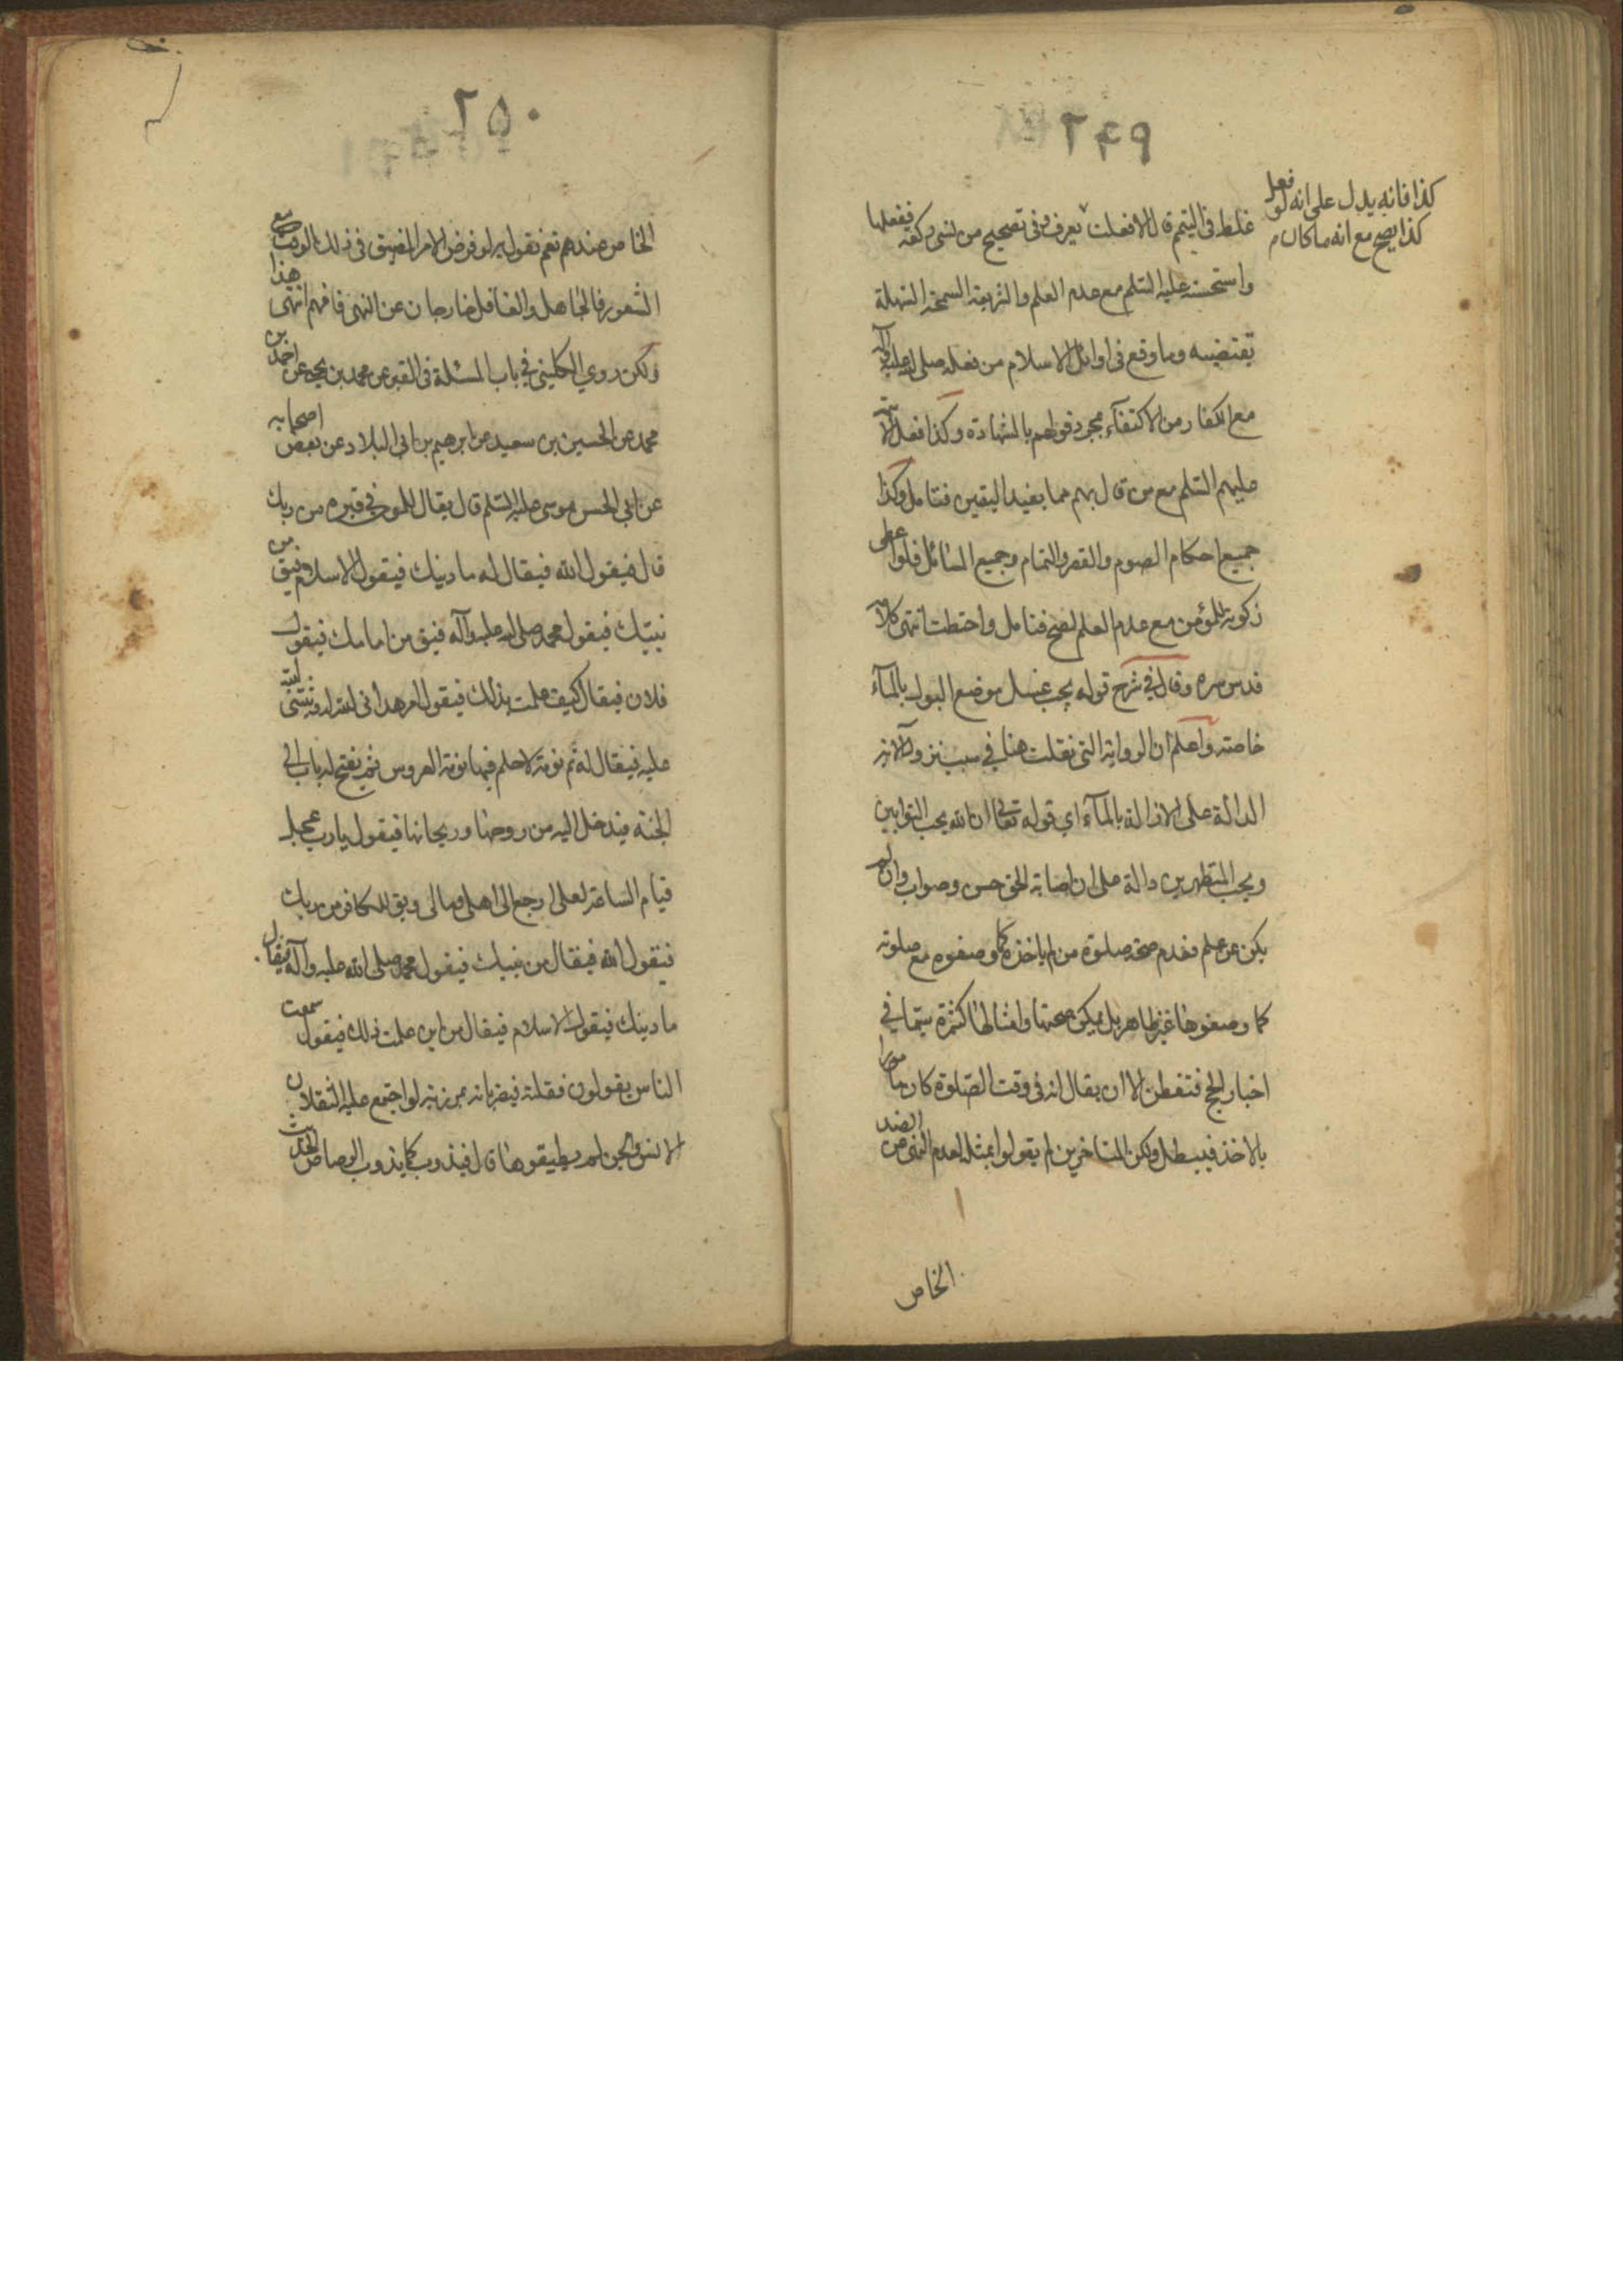 ٢٤٩
كذا فانه يدل على انه لو فعل
كذا يصح مع انه ما كان
غلط في التيمم قال الا فعلت يعرف وفى تصحيح من نسى ركعة ففعلها
واستحسنه عليه السلم مع عدم العلم والشريعة السمحة السهلة
تقتضيه وما وقع فى اوائل الاسلام من فعله صلى الله عليه وآله
مع الكفار من الاكتفآء بمجرد قولهم بالشهادة وكذا فعل الائمة
عليهم السلم مع من قال بهم مما يفيد اليقين فتامل وكذا
جميع احكام الصوم والقصر والتمام وجميع المسائل فلو اعطى
زكوته للمؤمن مع عدم العلم لصح فتامل واحتط انتهى كلامه
قدس سره وقال في شرح قوله يجب غسل موضع البول بالمآء
خاصة واعلم ان الرواية التى نقلت هنا في سبب نزول الآية
الدالة على الازالة بالمآء اي قوله تعالى ان الله يحب التوابين
ويحب المتطهرين دالة على ان اصابة الحق حسن وصواب وان لم
يكن عن علم فعدم صحة صلوة من لم ياخذه كما وصفوه مع صلوته
كما وصفوها غير ظاهر بل يمكن صحتها وامثالها كثيرة سيما في
اخبار الحج فتفطن الا ان يقال انه فى وقت الصلوة كان مامورا
بالاخذ فيبطل ولكن المتاخرين لم يقولوا بمثله لعدم النهى عن الضد
الخاص
٢٥٠
الخاص عندهم نعم نقول به لو فرض الامر المضيق فى ذلك الوقت مع
الشعور فالجاهل والغافل خارجان عن النهى فافهم انتهى هذا
ولكن روي الكليني في باب المسئلة فى القبر عن محمد بن يحيى عن احمد بن
محمد عن الحسين بن سعيد عن ابرهيم بن ابى البلاد عن بعض اصحابه
عن ابي الحسن موسى عليه السلم قال يقال للمؤمن في قبره من ربك
قال فيقول الله فيقال له ما دينك فيقول الاسلام فيق من
نبيك فيقول محمد صلى الله عليه وآله فيق من امامك فيقول
فلان فيقال كيف علمت بذلك فيقول امر هدانى الله له وثبتنى
عليه فيقال له نم نومة لا حلم فيها نومة العروس ثم يفتح له باب الى
الجنة فيدخل اليه من روحها وريحانها فيقول يا رب عجل
قيام الساعة لعلى ارجع الى اهلى ومالى ويق للكافر من ربك
فيقول الله فيقال من نبيك فيقول محمد صلى الله عليه وآله فيقال
ما دينك فيقول الاسلام فيقال من اين علمت ذلك فيقول سمعت
الناس يقولون فقلته فيضربانه بمرزبة لو اجتمع عليه الثقلان
الانس والجن لم يطيقوها قال فيذوب كما يذوب الرصاص الحديث